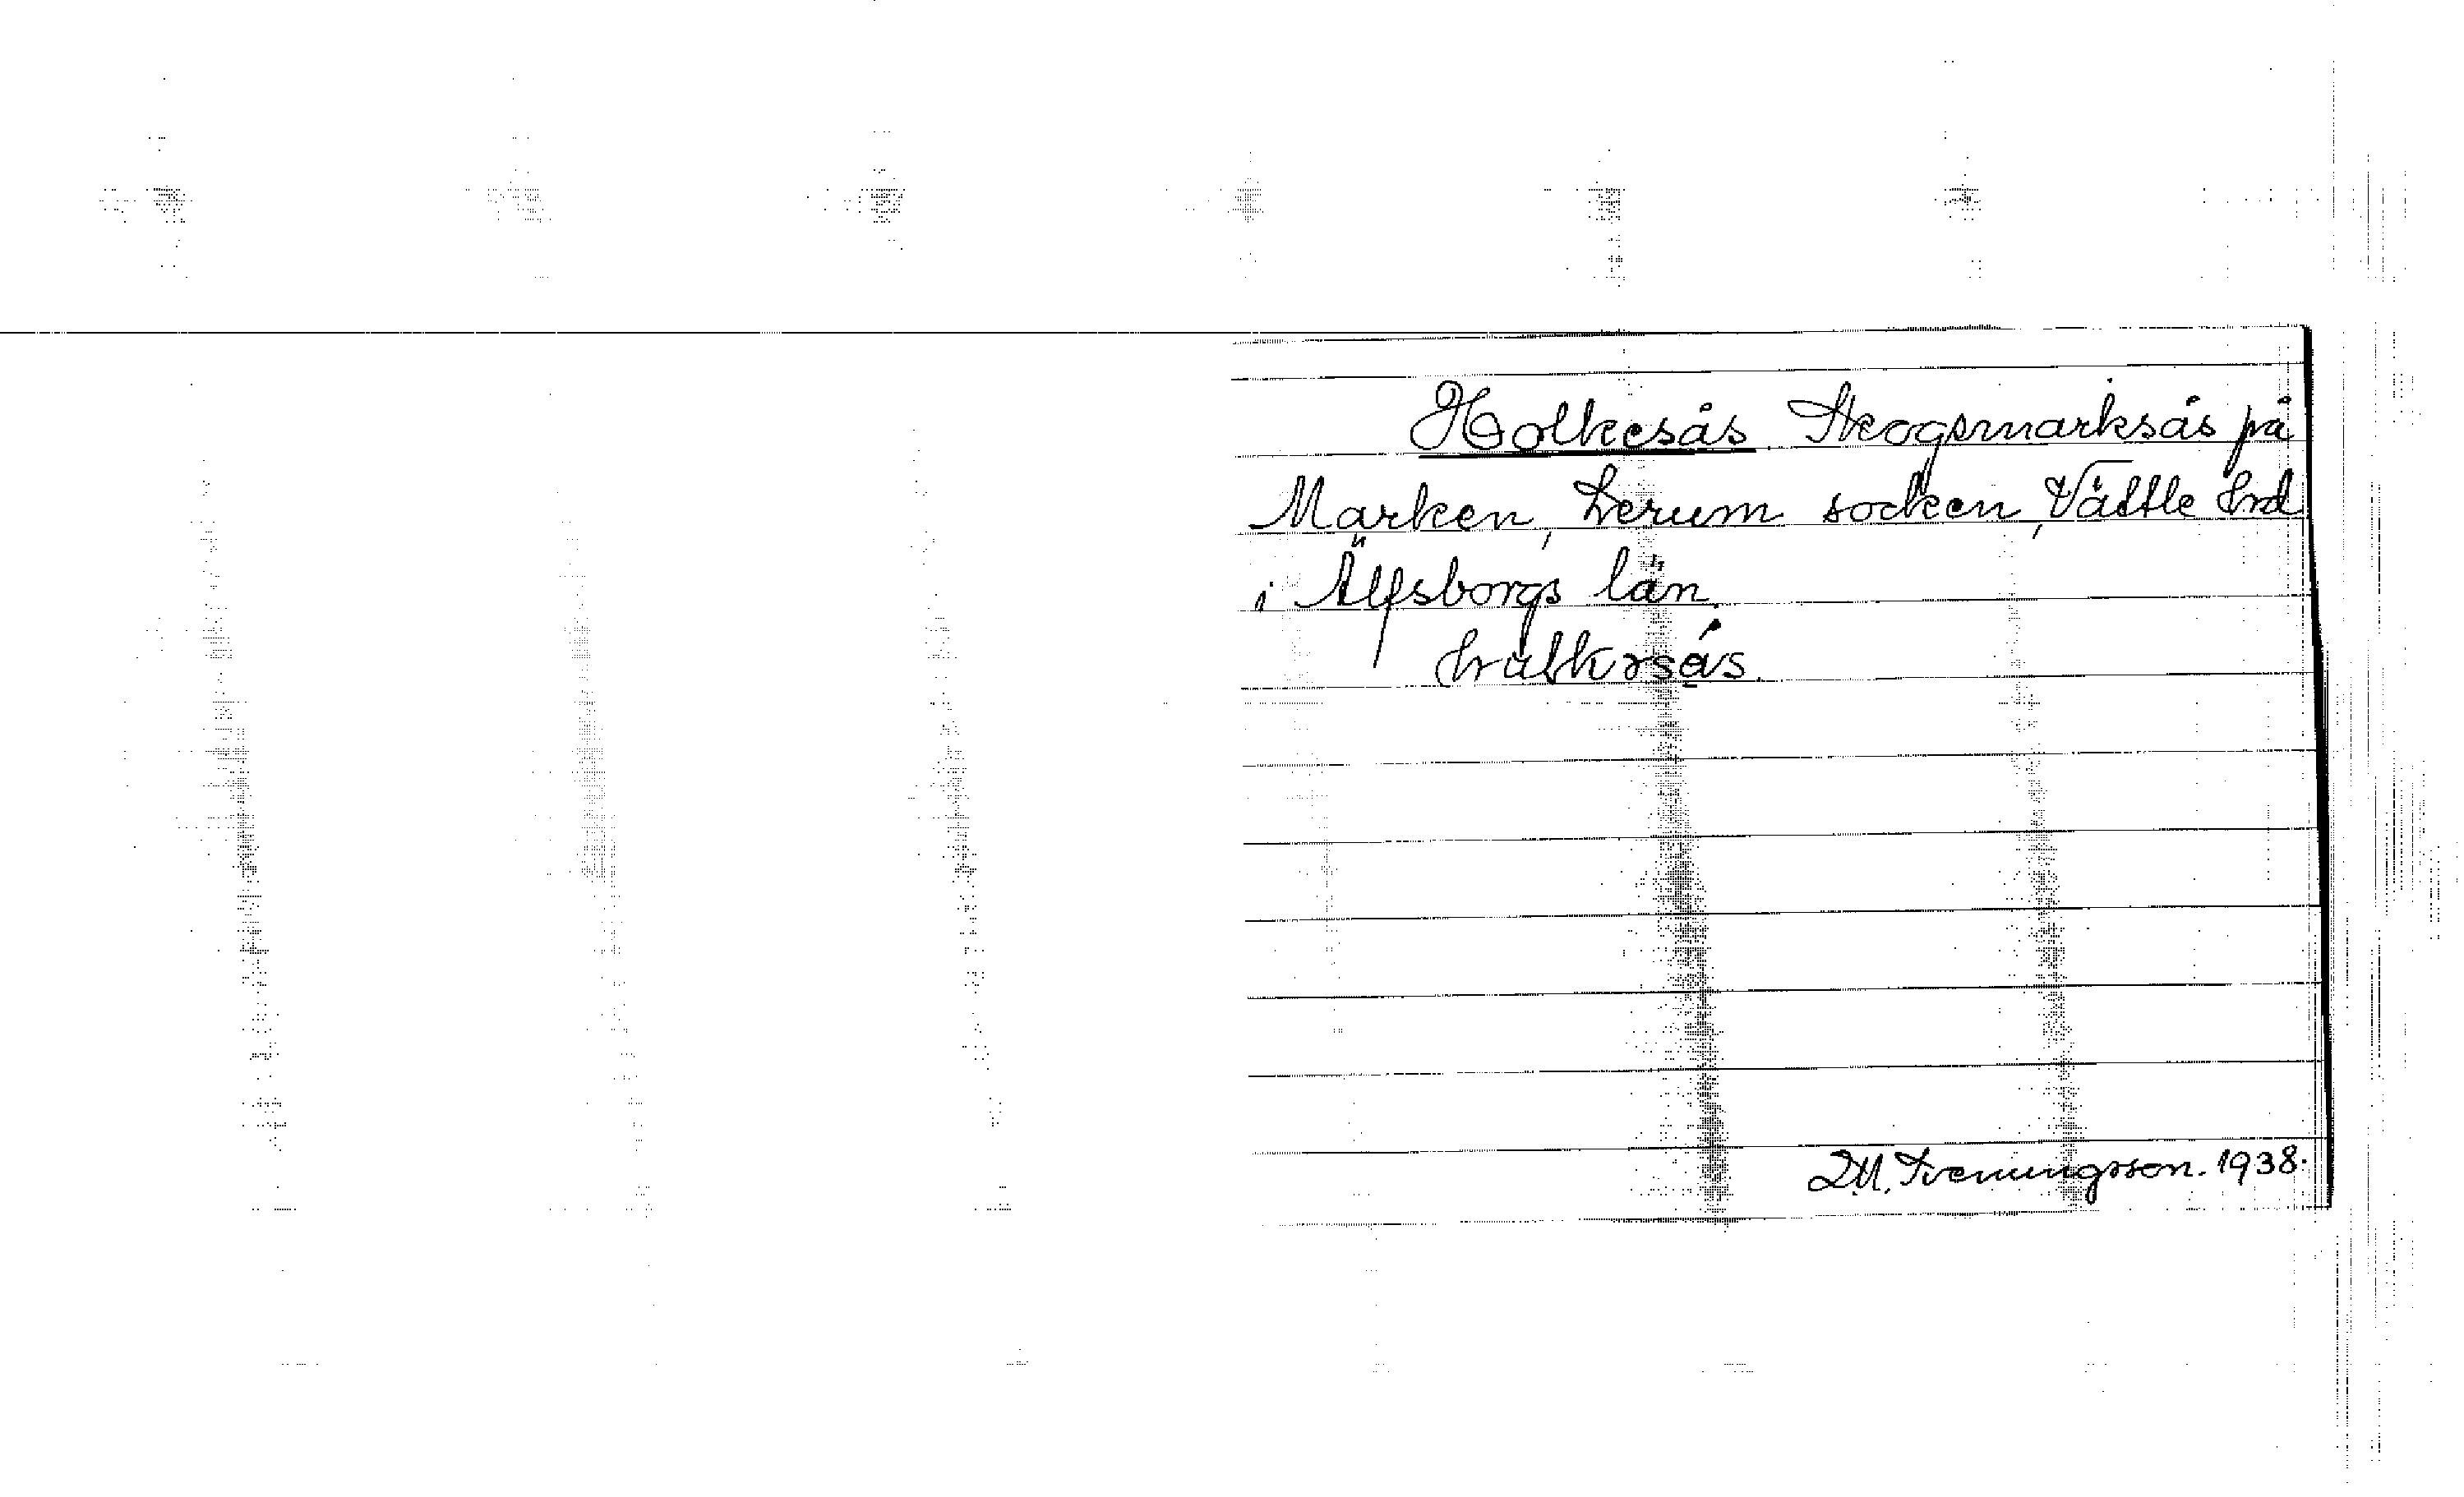 Holkesås. Skogsmarksås på
Marken, Lerum socken, Vättle hd
i Älfsborgs län.
hålkəsás.
D.M. Svenungsson. 1938.